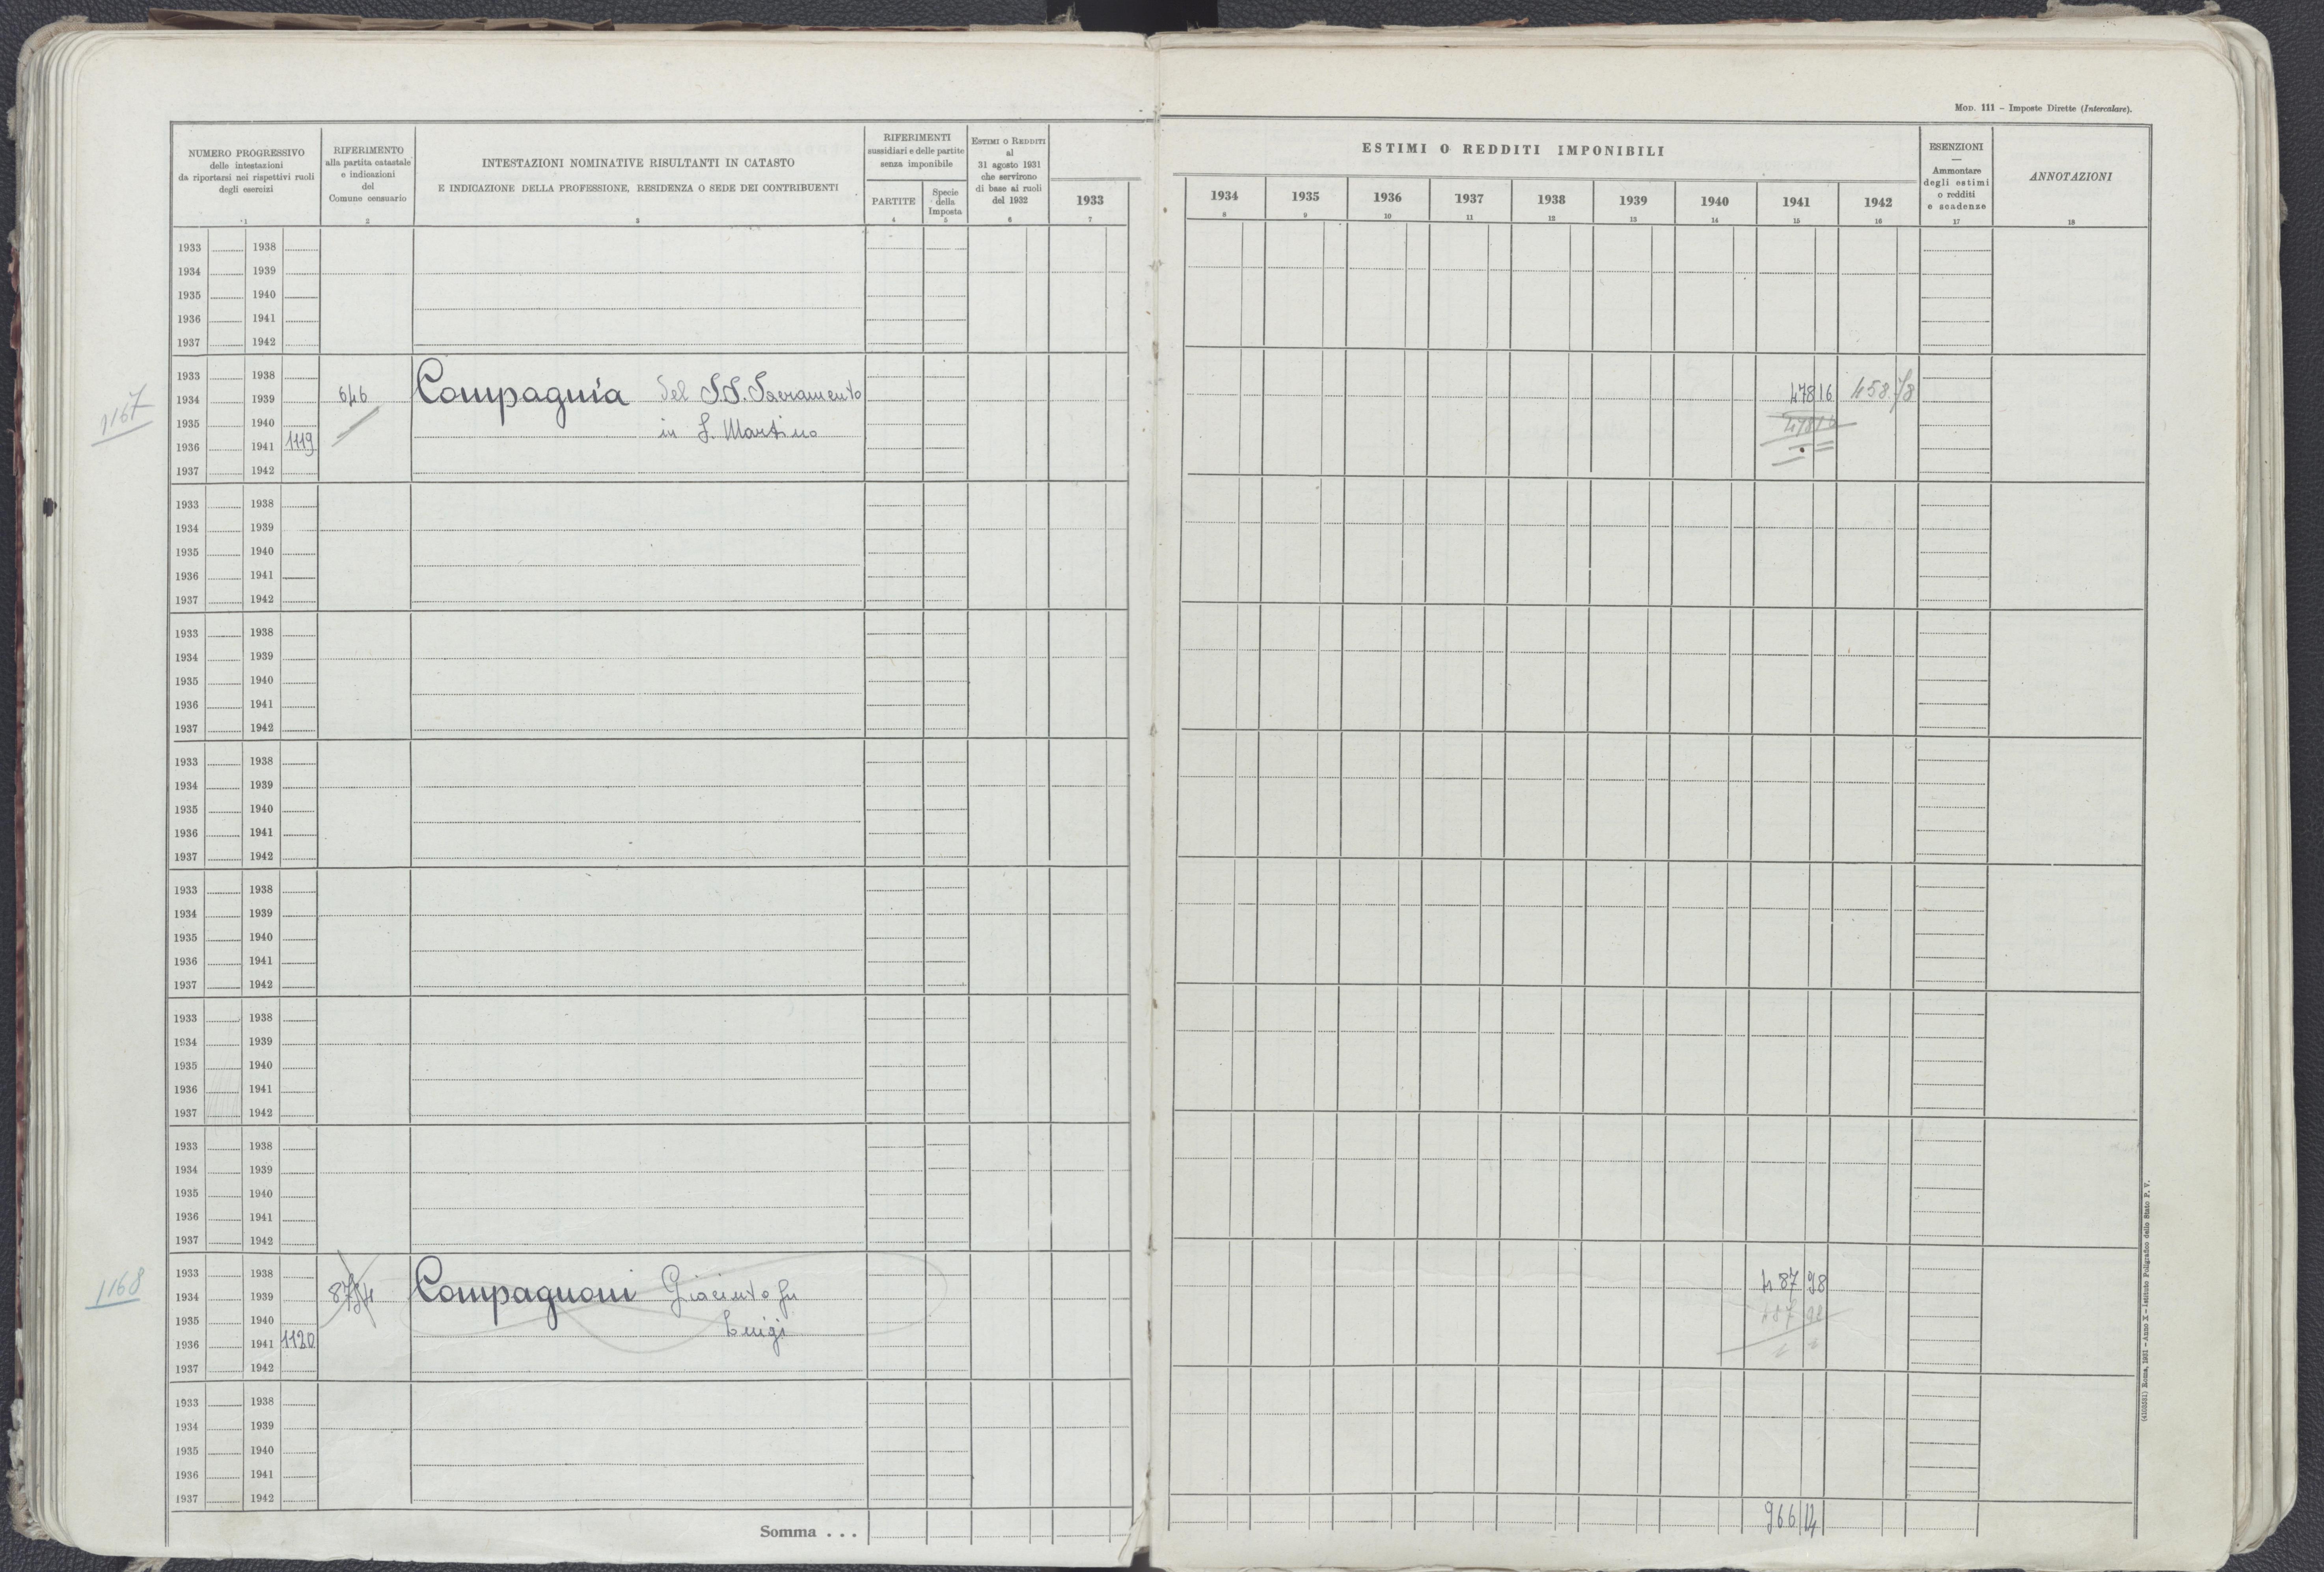 MOD. 111 – Imposte Dirette (Intercalare).
NUMERO PROGRESSIVO
delle intestazioni
da riportarsi nei rispettivi ruoli
degli esercizi
1
RIFERIMENTO
alla partita catastale
e indicazioni
del
Comune censuario
2
INTESTAZIONI NOMINATIVE RISULTANTI IN CATASTO
E INDICAZIONE DELLA PROFESSIONE, RESIDENZA O SEDE DEI CONTRIBUENTI
3
RIFERIMENTI
sussidiari e delle partite
senza imponibile
PARTITE
4
Specie
della
Imposta
5
ESTIMI O REDDITI
al
31 agosto 1931
che servirono
di base ai ruoli
del 1932
6
1933
7
ESTIMI O REDDITI IMPONIBILI
1934 1935 1936 1937 1938 1939 1940 1941 1942
8 9 10 11 12 13 14 15 16
ESENZIONI
—
Ammontare
degli estimi
o redditi
e scadenze
17
ANNOTAZIONI
18
1933 1938
1934 1939
1935 1940
1936 1941
1937 1942
1167
1933 1938
1934 1939 646 Compagnia del S.S. Sacramento 478 16 458.78
1935 1940 478 16
1936 1941 1119 in S. Martino
1937 1942
1933 1938
1934 1939
1935 1940
1936 1941
1937 1942
1933 1938
1934 1939
1935 1940
1936 1941
1937 1942
1933 1938
1934 1939
1935 1940
1936 1941
1937 1942
1933 1938
1934 1939
1935 1940
1936 1941
1937 1942
1933 1938
1934 1939
1935 1940
1936 1941
1937 1942
1933 1938
1934 1939
1935 1940
1936 1941
1937 1942
1168
1933 1938
1934 1939 Compagnoni Giacinto fu 487 98
1935 1940 487 98
1936 1941 1120 Luigi
1937 1942
1933 1938
1934 1939
1935 1940
1936 1941
1937 1942
Somma . . . 966 14
(4103591) Roma, 1931 – Anno X – Istituto Poligrafico dello Stato P. V.